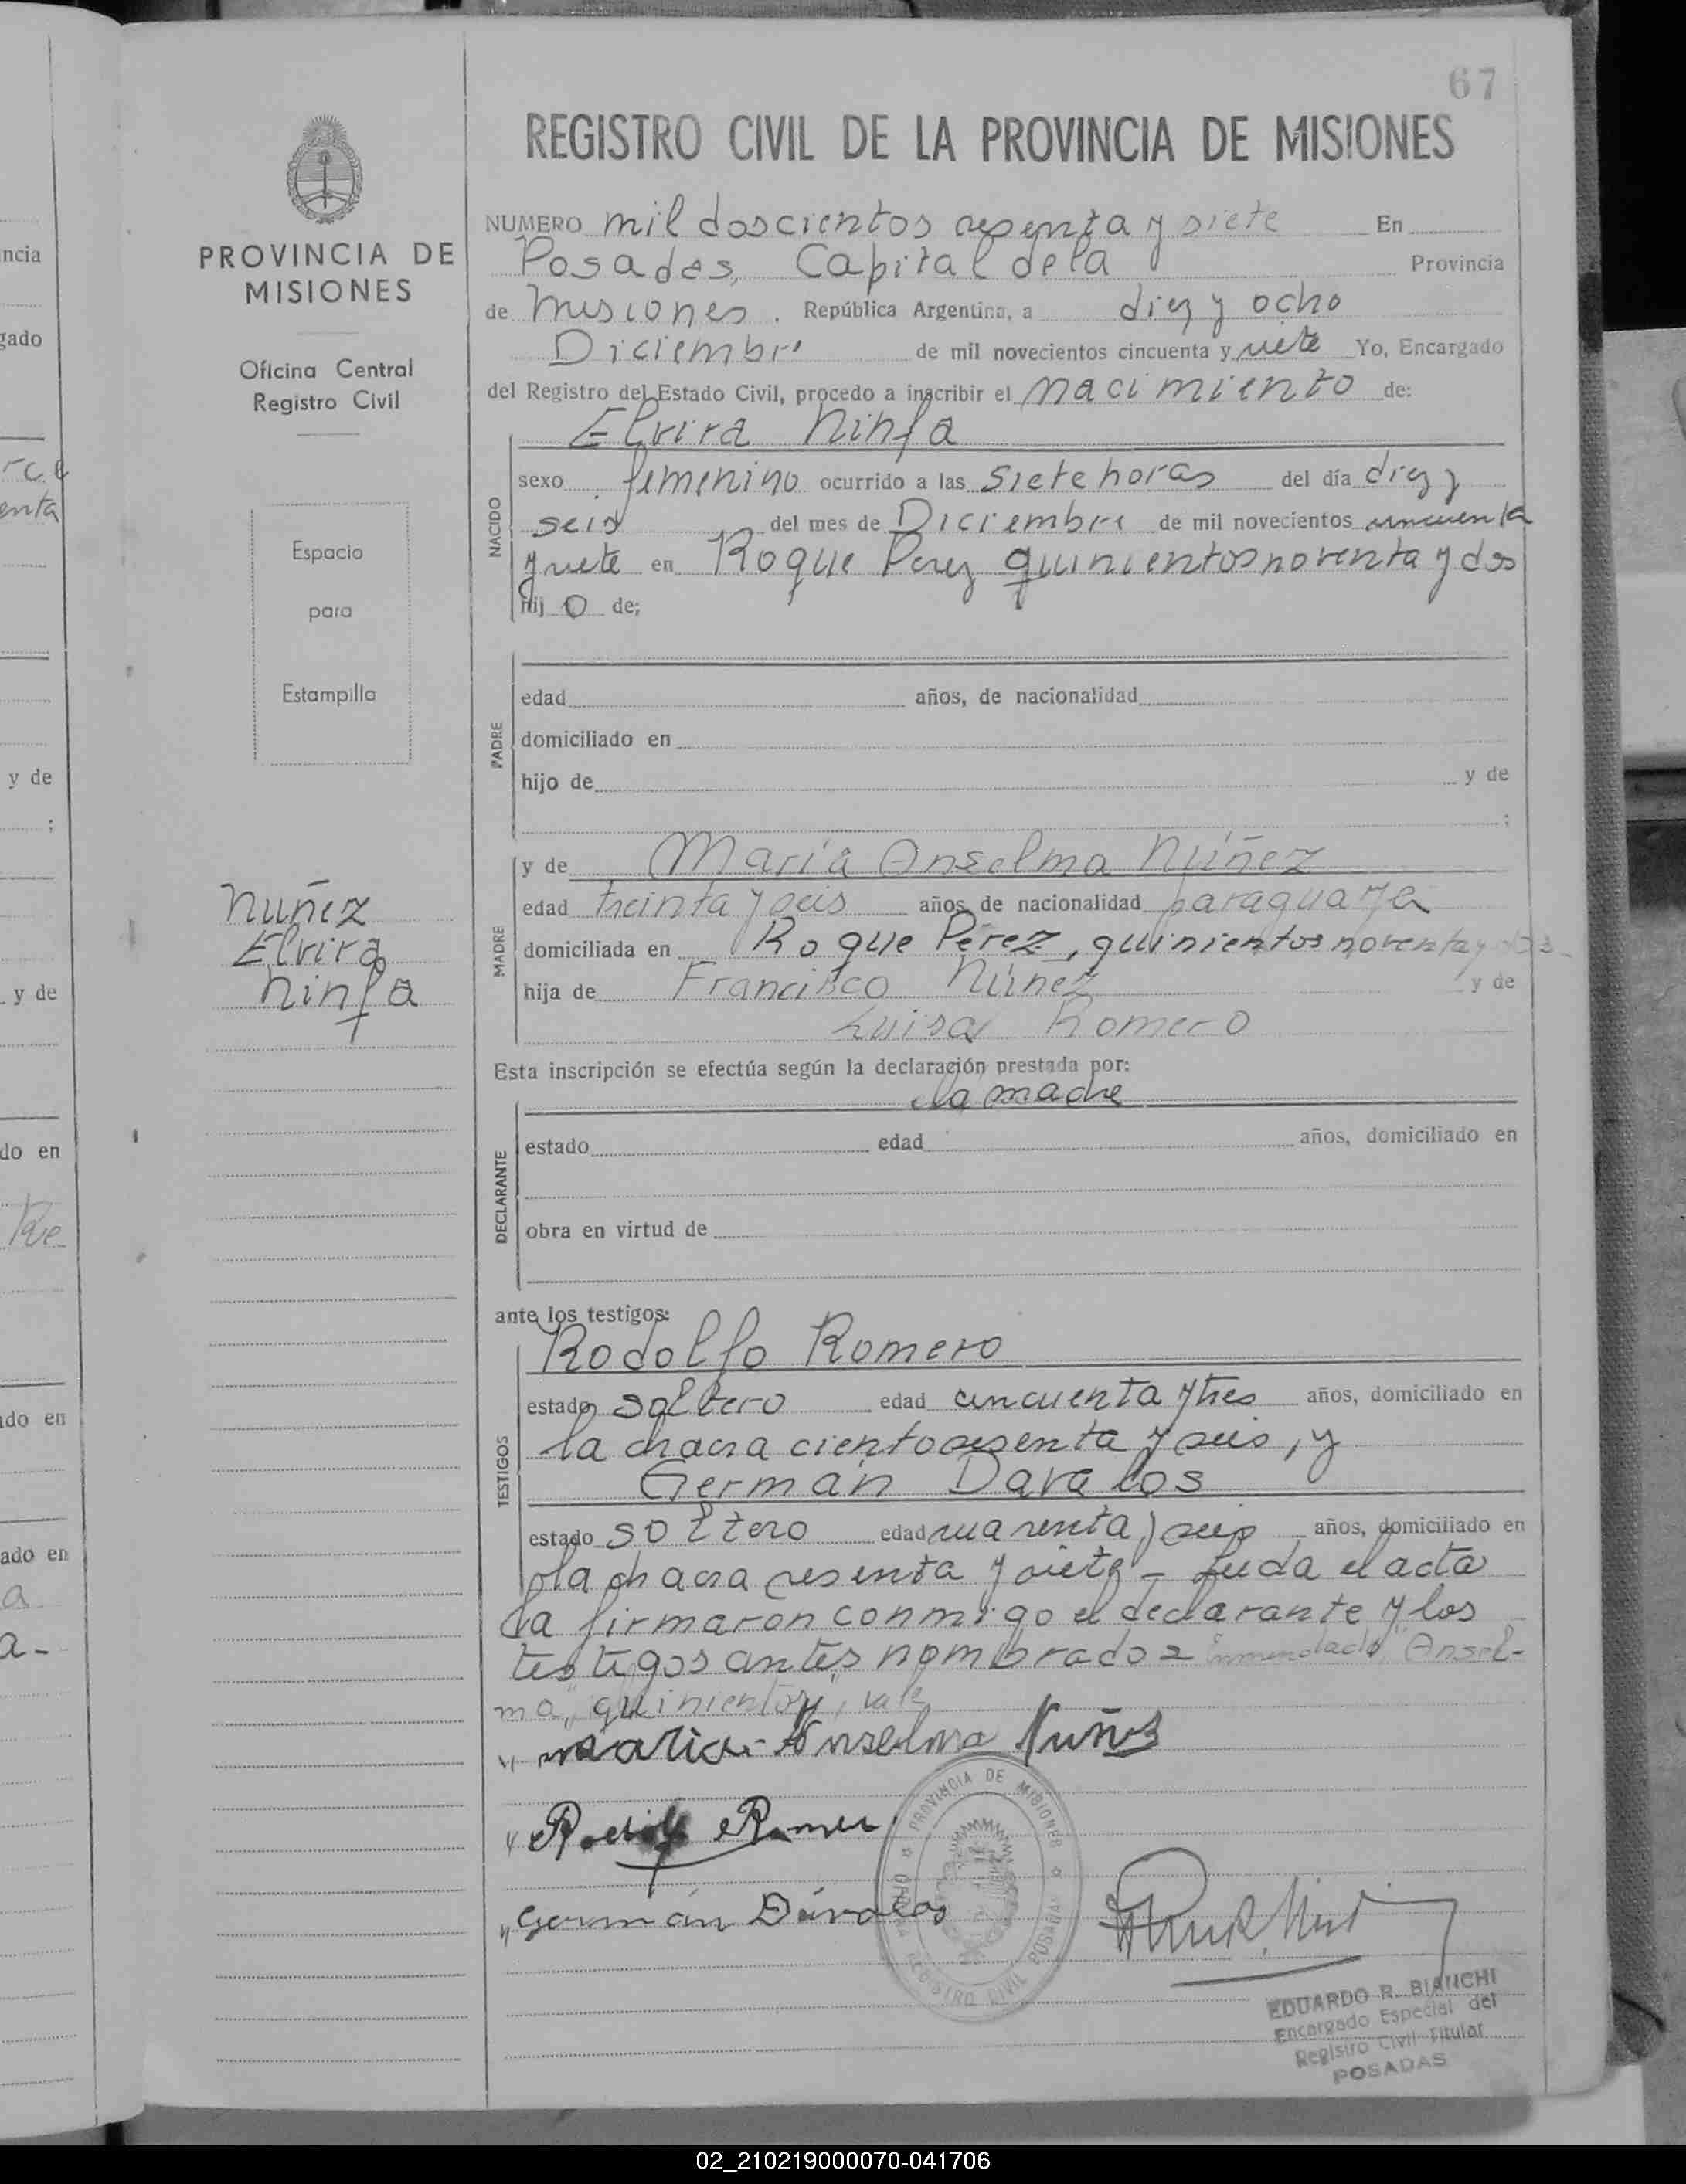 67
REGISTRO CIVIL DE LA PROVINCIA DE MISIONES
PROVINCIA DE
MISIONES
Oficina Central
Registro Civil
Espacio
para
Estampilla
Nuñez
Elvira
Ninfa
NUMERO mil doscientos sesenta y siete En
Posadas, Capital de la Provincia
de Misiones. República Argentina, a diez y ocho
Diciembre de mil novecientos cincuenta y siete Yo, Encargado
del Registro del Estado Civil, procedo a inscribir el nacimiento de:
Elvira Ninfa
NACIDO
sexo femenino ocurrido a las siete horas del día diez y
seis del mes de Diciembre de mil novecientos cincuenta
y siete en Roque Perez quinientos noventa y dos
hij o de;
PADRE
edad años, de nacionalidad
domiciliado en
hijo de y de
;
MADRE
y de María Anselma Núñez
edad treinta y seis años de nacionalidad paraguaya
domiciliada en Roque Pérez, quinientos noventa y dos
hija de Francisco Núnez y de
Luisa Romero
Esta inscripción se efectúa según la declaración prestada por:
la madre
DECLARANTE
estado edad años, domiciliado en
obra en virtud de
ante los testigos:
Rodolfo Romero
TESTIGOS
estado soltero edad cincuenta y tres años, domiciliado en
la chacra ciento sesenta y seis, y
Germán Davalos
estado soltero edad cuarenta y seis años, domiciliado en
la chacra sesenta y siete - Leida el acta
la firmaron conmigo el declarante y los
testigos antes nombrados Enmendado "Ansel-
ma", "quinientos", vale
Maria Anselma Nuñez
Rodolfo Romero
German Dávalos
PROVINCIA DE MISIONES
REGISTRO CIVIL POSADAS
EDUARDO R. BIANCHI
Encargado Especial del
Registro Civil Titular
POSADAS
ncia
gado
rce
enta
y de
;
y de
do en
ado en
ado en
a
a-
02_210219000070-041706